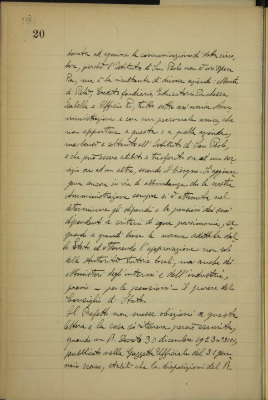 20
dovuta ad ognuno la comunicazione di detta circo-
lare, poiché l'Istituto di San Paolo non è un'Opera
Pia, ma è la risultante di diverse aziende: Monte
di Pietà, Credito fondiario, Educatorio Duchessa
Isabella e Ufficio Pio, tutte sotto una unica Am-
ministrazione e con un personale unico, che
non appartiene a questa o a quella azienda,
ma bensì all'Istituto di San Paolo,
e che può essere adibito e trasferito ora ad un ser-
vizio ora ad un altro, secondo il bisogno. Si aggiun-
geva ancora in via di abbondanza che la nostra
Amministrazione sempre si è attenuta nel
determinare gli stipendi e le pensioni dei suoi
dipendenti a criteri di equa parsimonia, se-
guendo a grandi linee le norme adottate dal-
lo Stato ed ottenendo l'approvazione non solo
delle Autorità tutorie locali, ma anche dei
Ministeri degli interni e dell'industria,
previo - per le pensioni - il parere del
Consiglio di Stato.
Il Prefetto non mosse obiezioni a questa
lettera e la cosa si riteneva perciò esaurita,
quando un R. Decreto 30 dicembre 1923 n°
pubblicato nella Gazzetta Ufficiale del gen-
naio scorso, stabilì che le disposizioni del R.